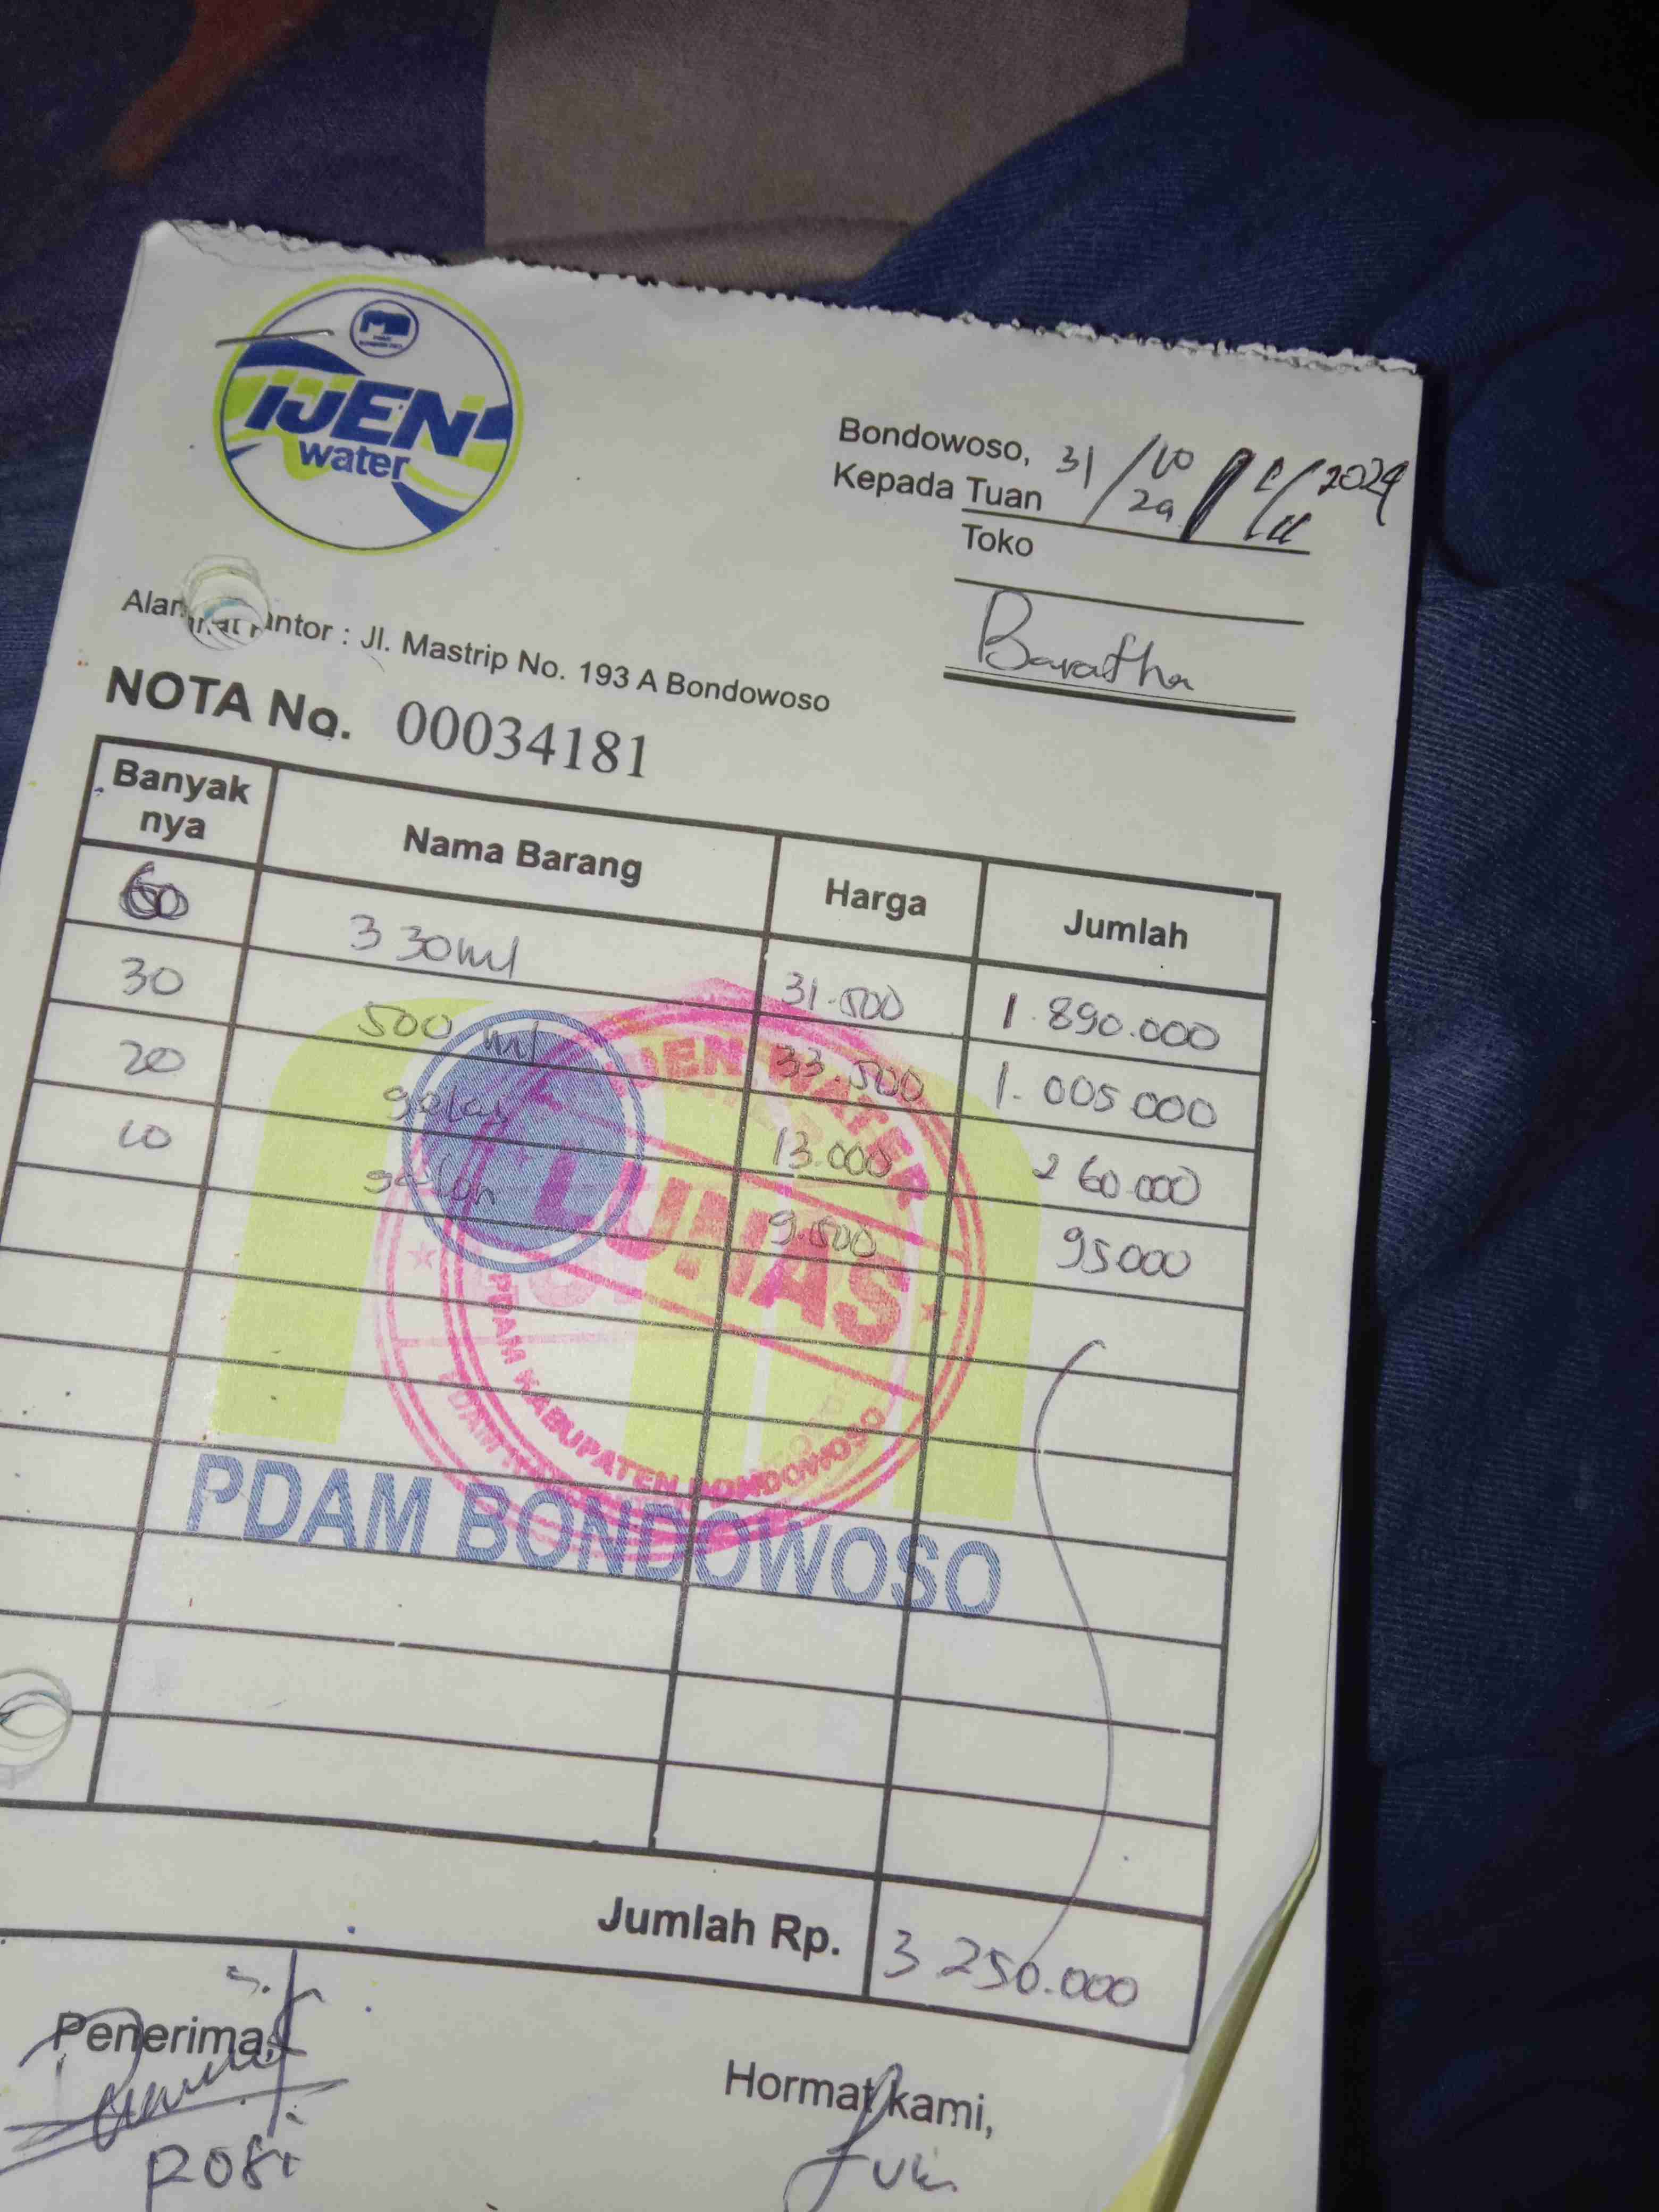 IJEN
water
Bondowoso, 31/10 24 2024
Kepada Tuan
Toko
Baratha
Kantor : Jl. Mastrip No. 193 A Bondowoso
NOTA No. 00034181
Banyak nya Nama Barang Harga Jumlah
60 330 ml 31.500 1.890.000
30 500 ml 33.500 1.005.000
20 gelas 13.000 260.000
10 galon 9.500 95000
IJEN WATER
LUNAS
PDAM KABUPATEN BONDOWOSO
PDAM BONDOWOSO
Jumlah Rp. 3.250.000
Penerima,
Hormat kami,